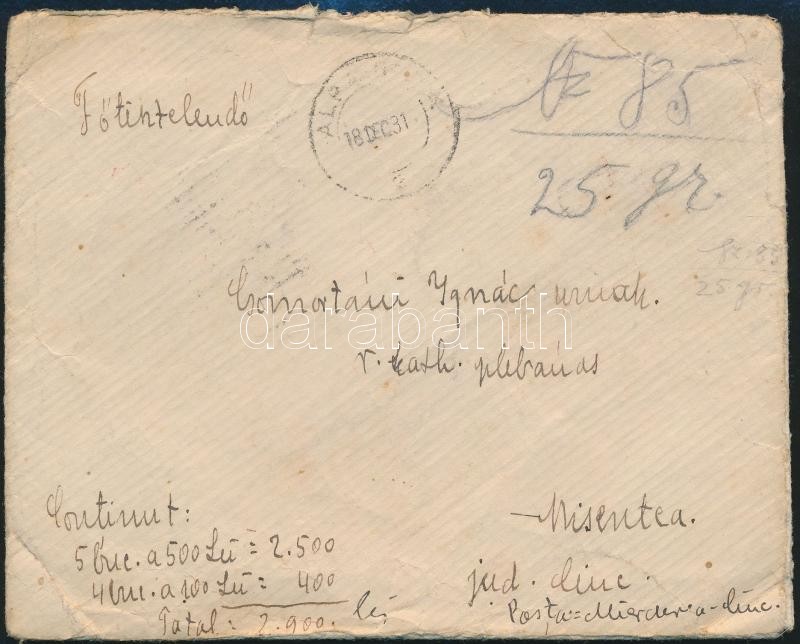 Főtisztelendő
18 DEC 31
№ 85
25 gr.
№ 85
25 gr.
Csomortáni Ignác urnak.
darabanth
r. kath. plebános
Continut:
5 buc. a 500 Lei = 2.500
4 buc. a 100 Lei = 400
Total = 2.900. lei
Misentea.
jud. Ciuc.
Posta = Miercurea-Ciuc.